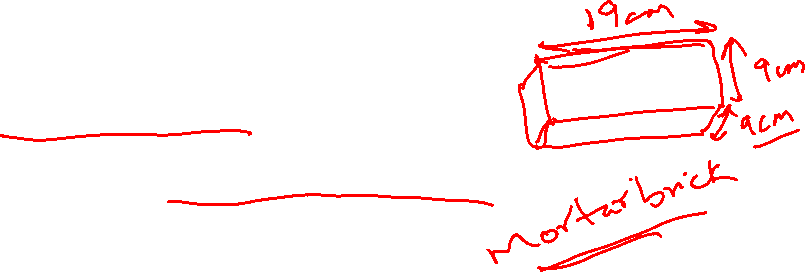 19cm
9cm
9cm
Mortarbrick